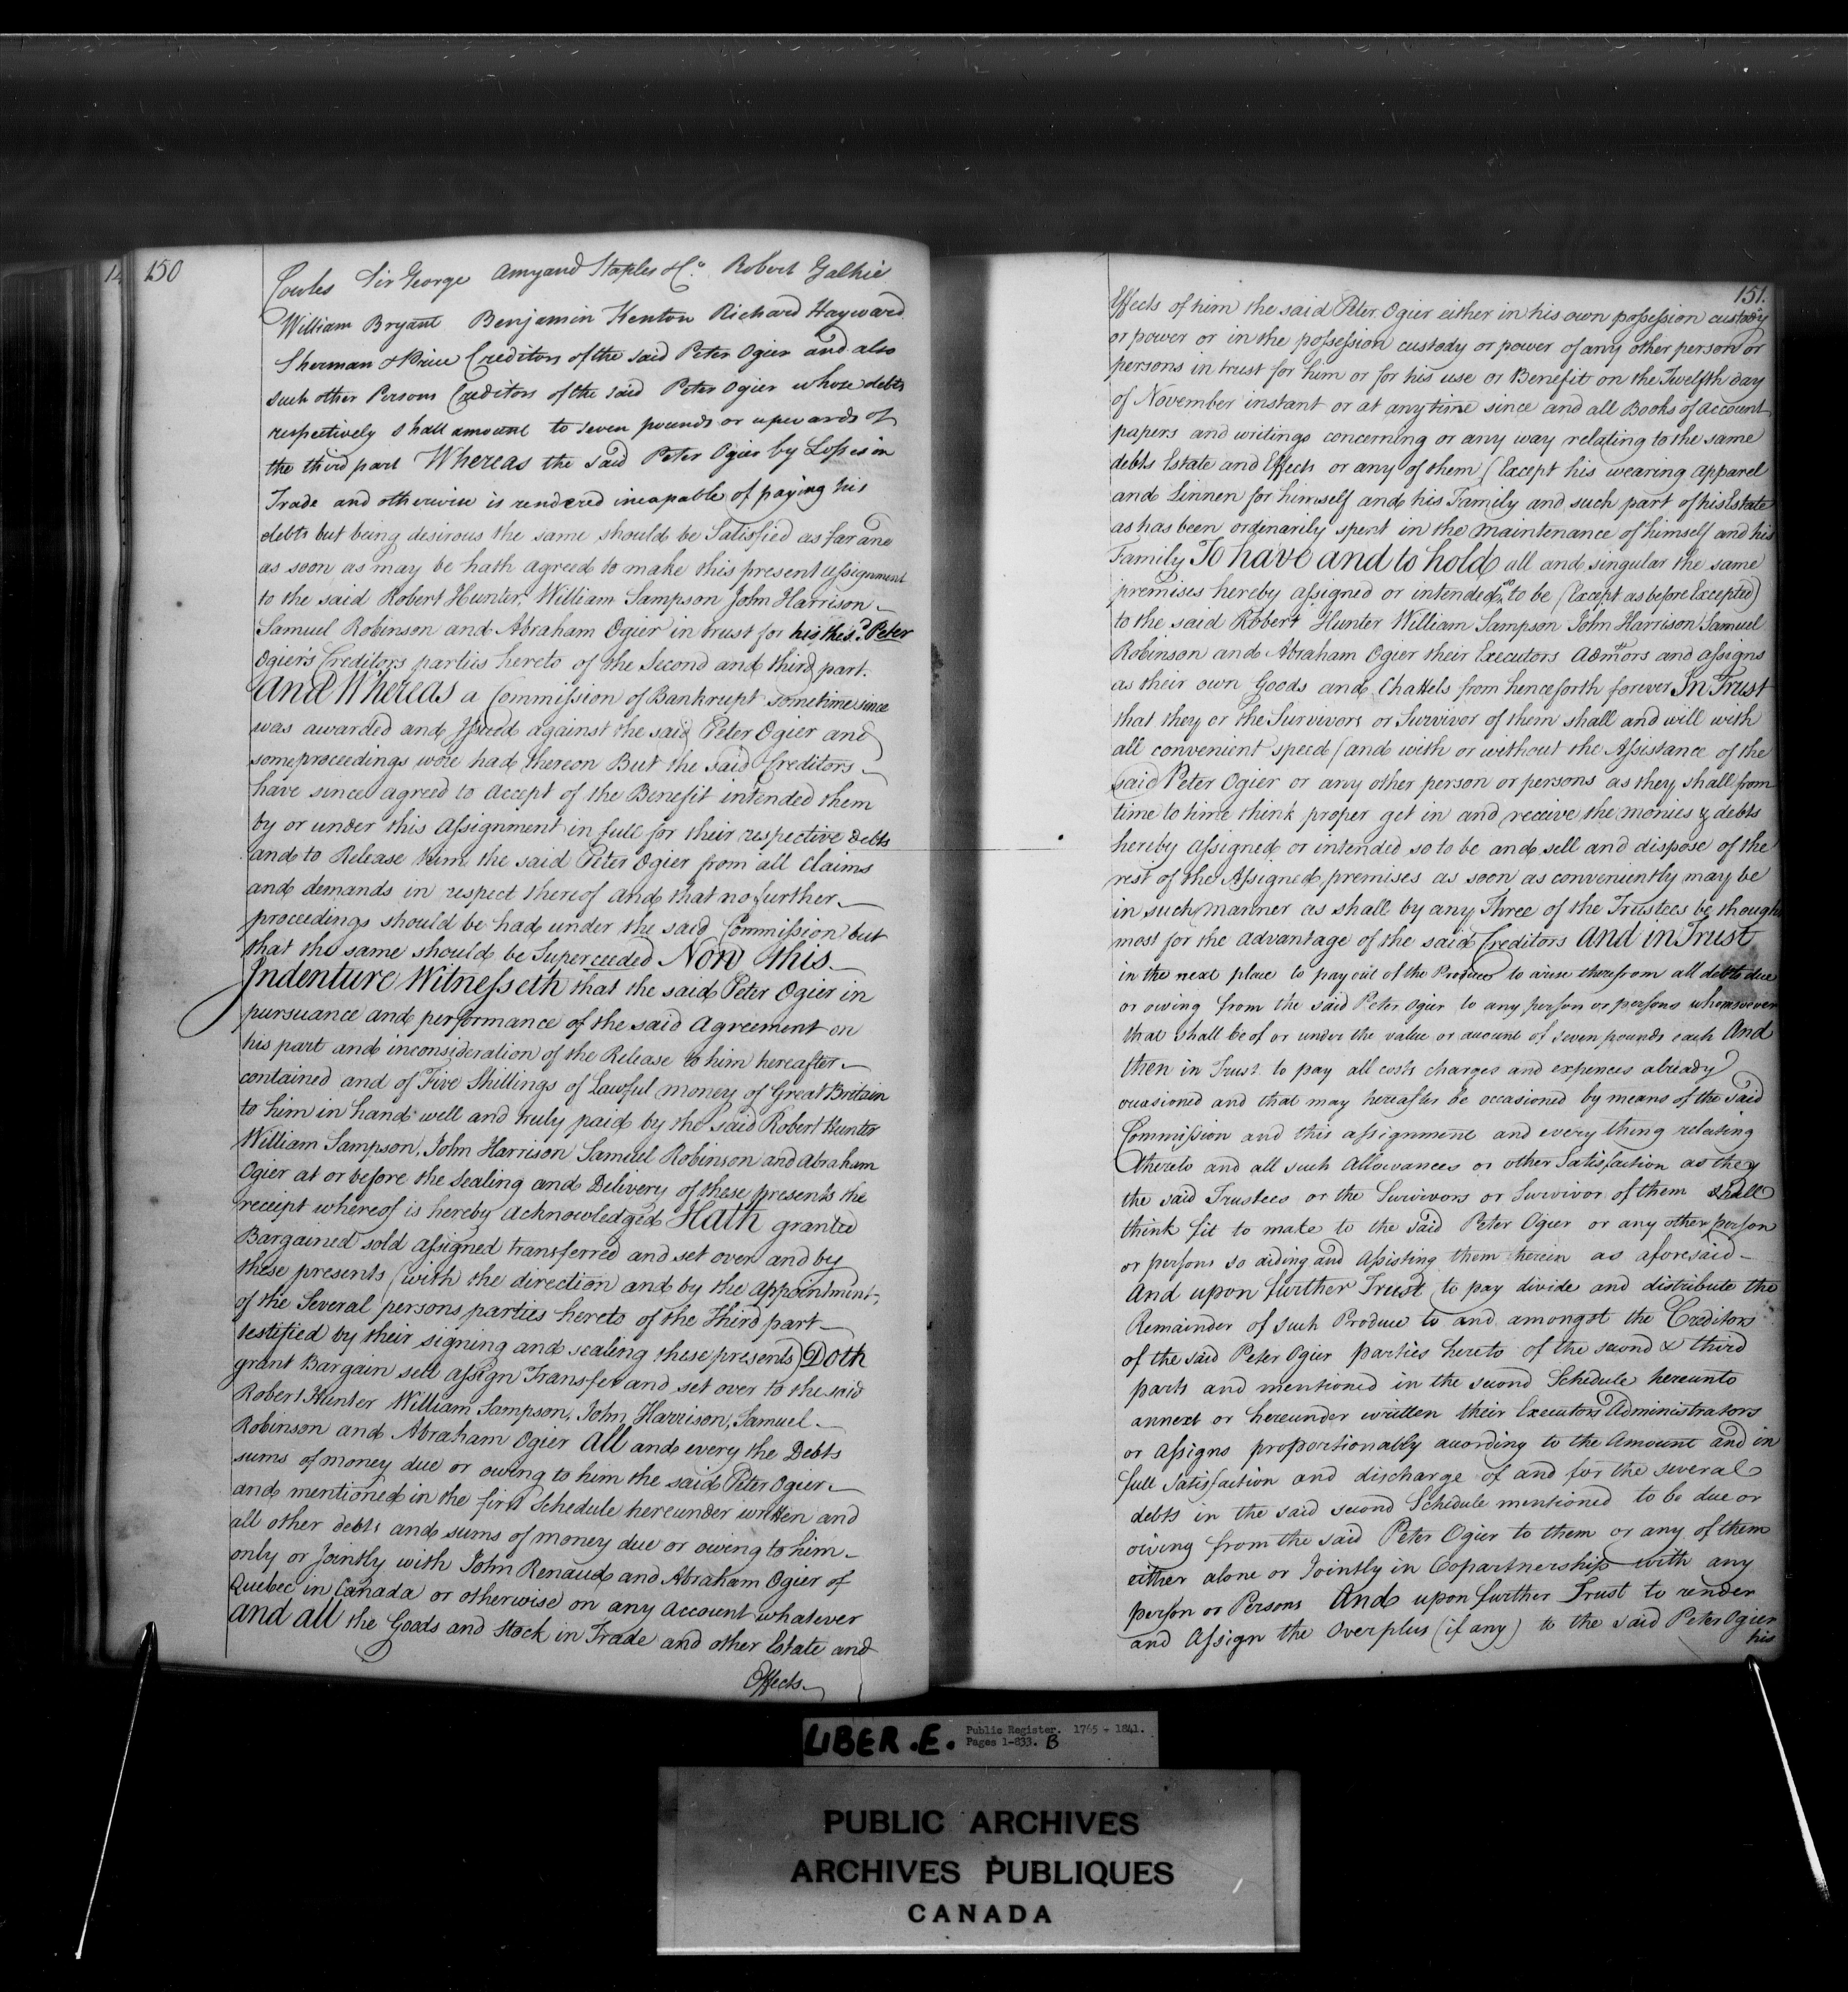 150
Cowles Sir George Amyand Staples & Co. Robert Galhie
William Bryant Benjamin Kenton Richard Hayward
Sherman & Price Creditors of the said Peter Ogier and also
such other Persons Creditors of the said Peter Ogier whose debts
respectively shall amount to seven pounds or upwards of
the third part Whereas the said Peter Ogier by Losses in
Trade and otherwise is rendered incapable of paying his
debts but being desirous the same should be Satisfied as far and
as soon as may be hath agreed to make this present assignment
to the said Robert Hunter, William Sampson John Harrison
Samuel Robinson and Abraham Ogier in trust for his the sd. Peter
Ogier's Creditors parties hereto of the Second and third part.
And Whereas a Commission of Bankrupt sometime since
was awarded and Issued against the said Peter Ogier and
some proceedings were had thereon But the said Creditors
have since agreed to Accept of the Benefit intended them
by or under this Assignment in full for their respective Debts
and to Release him the said Peter Ogier from all Claims
and demands in respect thereof and that no further
proceedings should be had under the said Commission but
that the same should be Superceeded Now this
Indenture Witnesseth that the said Peter Ogier in
pursuance and performance of the said Agreement on
his part and inconsideration of the Release to him hereafter
contained and of Five Shillings of Lawful money of Great Britain
to him in hand well and truly paid by the said Robert Hunter
William Sampson, John Harrison Samuel Robinson and Abraham
Ogier at or before the Sealing and Delivery of these presents the
receipt whereof is hereby Acknowledged Hath granted
Bargained sold assigned transferred and set over and by
these presents (with the direction and by the Appointment
of the Several persons parties hereto of the Third part
testified by their signing and sealing these presents) Doth
grant Bargain sell assign Transfer and set over to the said
Robert Hunter William Sampson, John Harrison, Samuel
Robinson and Abraham Ogier All and every the Debts
sums of money due or owing to him the said Peter Ogier
and mentioned in the first Schedule hereunder written and
all other debts and sums of money due or owing to him
only or Jointly with John Renaud and Abraham Ogier of
Quebec in Canada or otherwise on any Account whatever
and all the Goods and Stock in Trade and other Estate and
Effects
151.
Effects of him the said Peter Ogier either in his own possession custody
or power or in the possession custody or power of any other person or
persons in trust for him or for his use or Benefit on the Twelfth day
of November instant or at any time since and all Books of Account
papers and writings concerning or any way relating to the same
debts Estate and Effects or any of them (Except his wearing apparel
and Linnen for himself and his Family and such part of his Estate
as has been ordenarily spent in the maintenance of himself and his
Family To have and to hold all and singular the same
premises hereby assigned or intended so to be (Except as before Excepted)
to the said Robert Hunter William Sampson John Harrison Samuel
Robinson and Abraham Ogier their Executors Admors and assigns
as their own Goods and Chattels from henceforth forever In Trust
that they or the Survivors or Survivor of them shall and will with
all convenient speed (and with or without the Assistance of the
said Peter Ogier or any other person or persons as they shall from
time to time think proper get in and receive the monies & debts
hereby assigned or intended so to be and sell and dispose of the
rest of the Assigned premises as soon as conveniently may be
in such manner as shall by any Three of the Trustees be though
most for the advantage of the said Creditors And in Trust
in the next place to pay out of the Produce to arise therefrom all debts due
or owing from the said Peter Ogier to any person or persons whomsoever
that shall be of or under the value or amount of seven pounds each And
then in Trust to pay all costs charges and expences already
occasioned and that may hereafter be occasioned by means of the said
Commission and this assignment and every thing relating
thereto and all such Allowances or other Satisfaction as they
the said Trustees or the Survivors or Survivor of them shall
think fit to make to the said Peter Ogier or any other person
or persons so aiding and Assisting them herein as aforesaid
And upon further Trust to pay divide and distribute the
Remainder of such Produce to and amongst the Creditors
of the said Peter Ogier parties hereto of the second & third
parts and mentioned in the second Schedule hereunto
annext or hereunder written their Executors Administrators
or Assigns proportionably according to the Amount and in
full Satisfaction and discharge of and for the several
debts in the said second Schedule mentioned to be due or
owing from the said Peter Ogier to them or any of them
either alone or Jointly in Copartnership with any
person or Persons And upon further Trust to render
and Assign the Overplus (if any) to the said Peter Ogier
his
LIBER.E. Public Register. 1765 - 1841.
Pages 1-833. B
PUBLIC ARCHIVES
ARCHIVES PUBLIQUES
CANADA